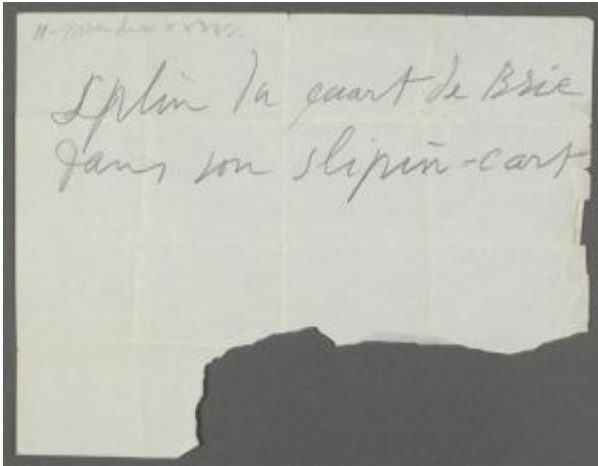 splin du quart de Brie
dans son slipin-cart